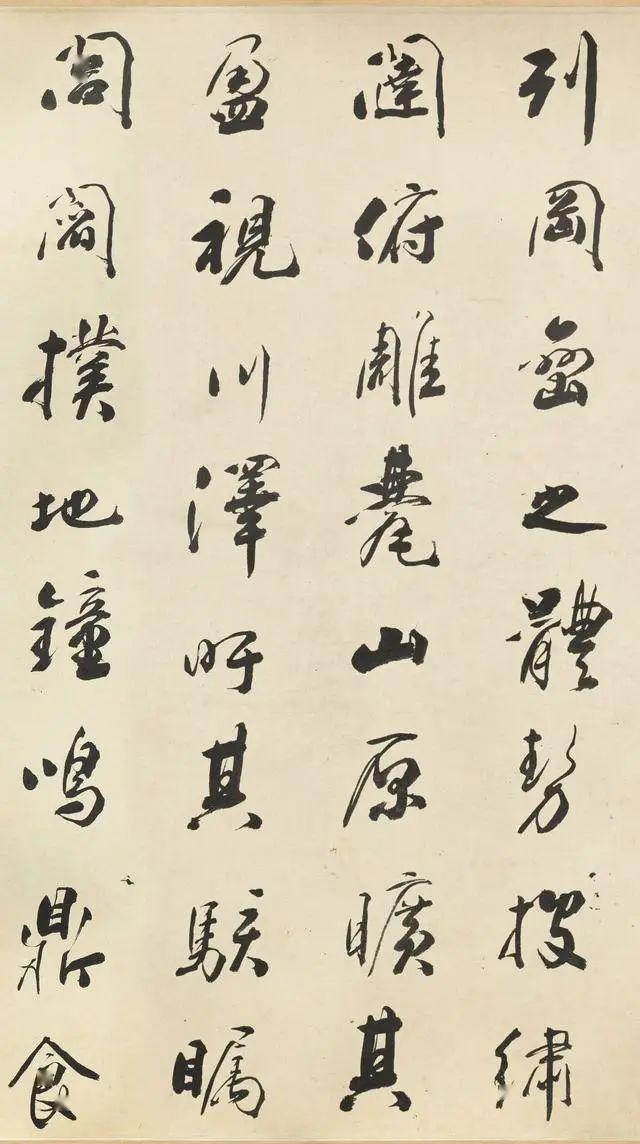 列岡巒之體勢披繡
闥俯雕甍山原曠其
盈視川澤盱其駭矚
閭閻撲地鐘鳴鼎食